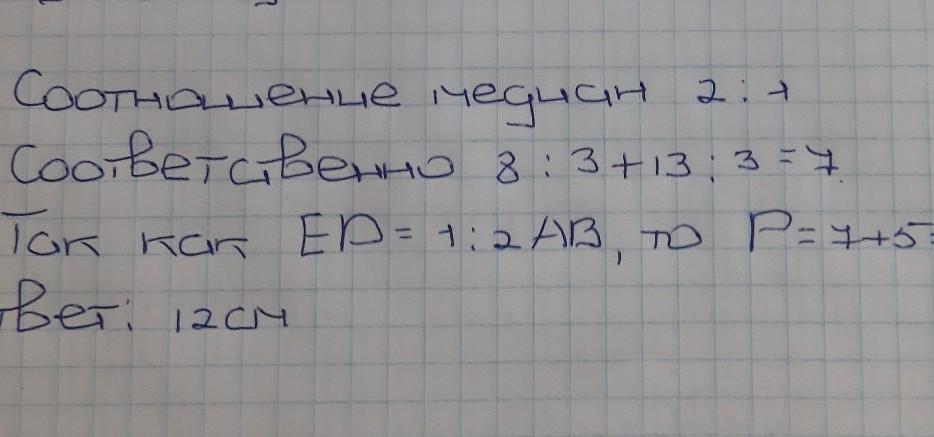 Соотношение медиан 2:1
Соответственно 8:3+13:3=7.
Так как ED=1:2AB, то P=7+5=
твет: 12см